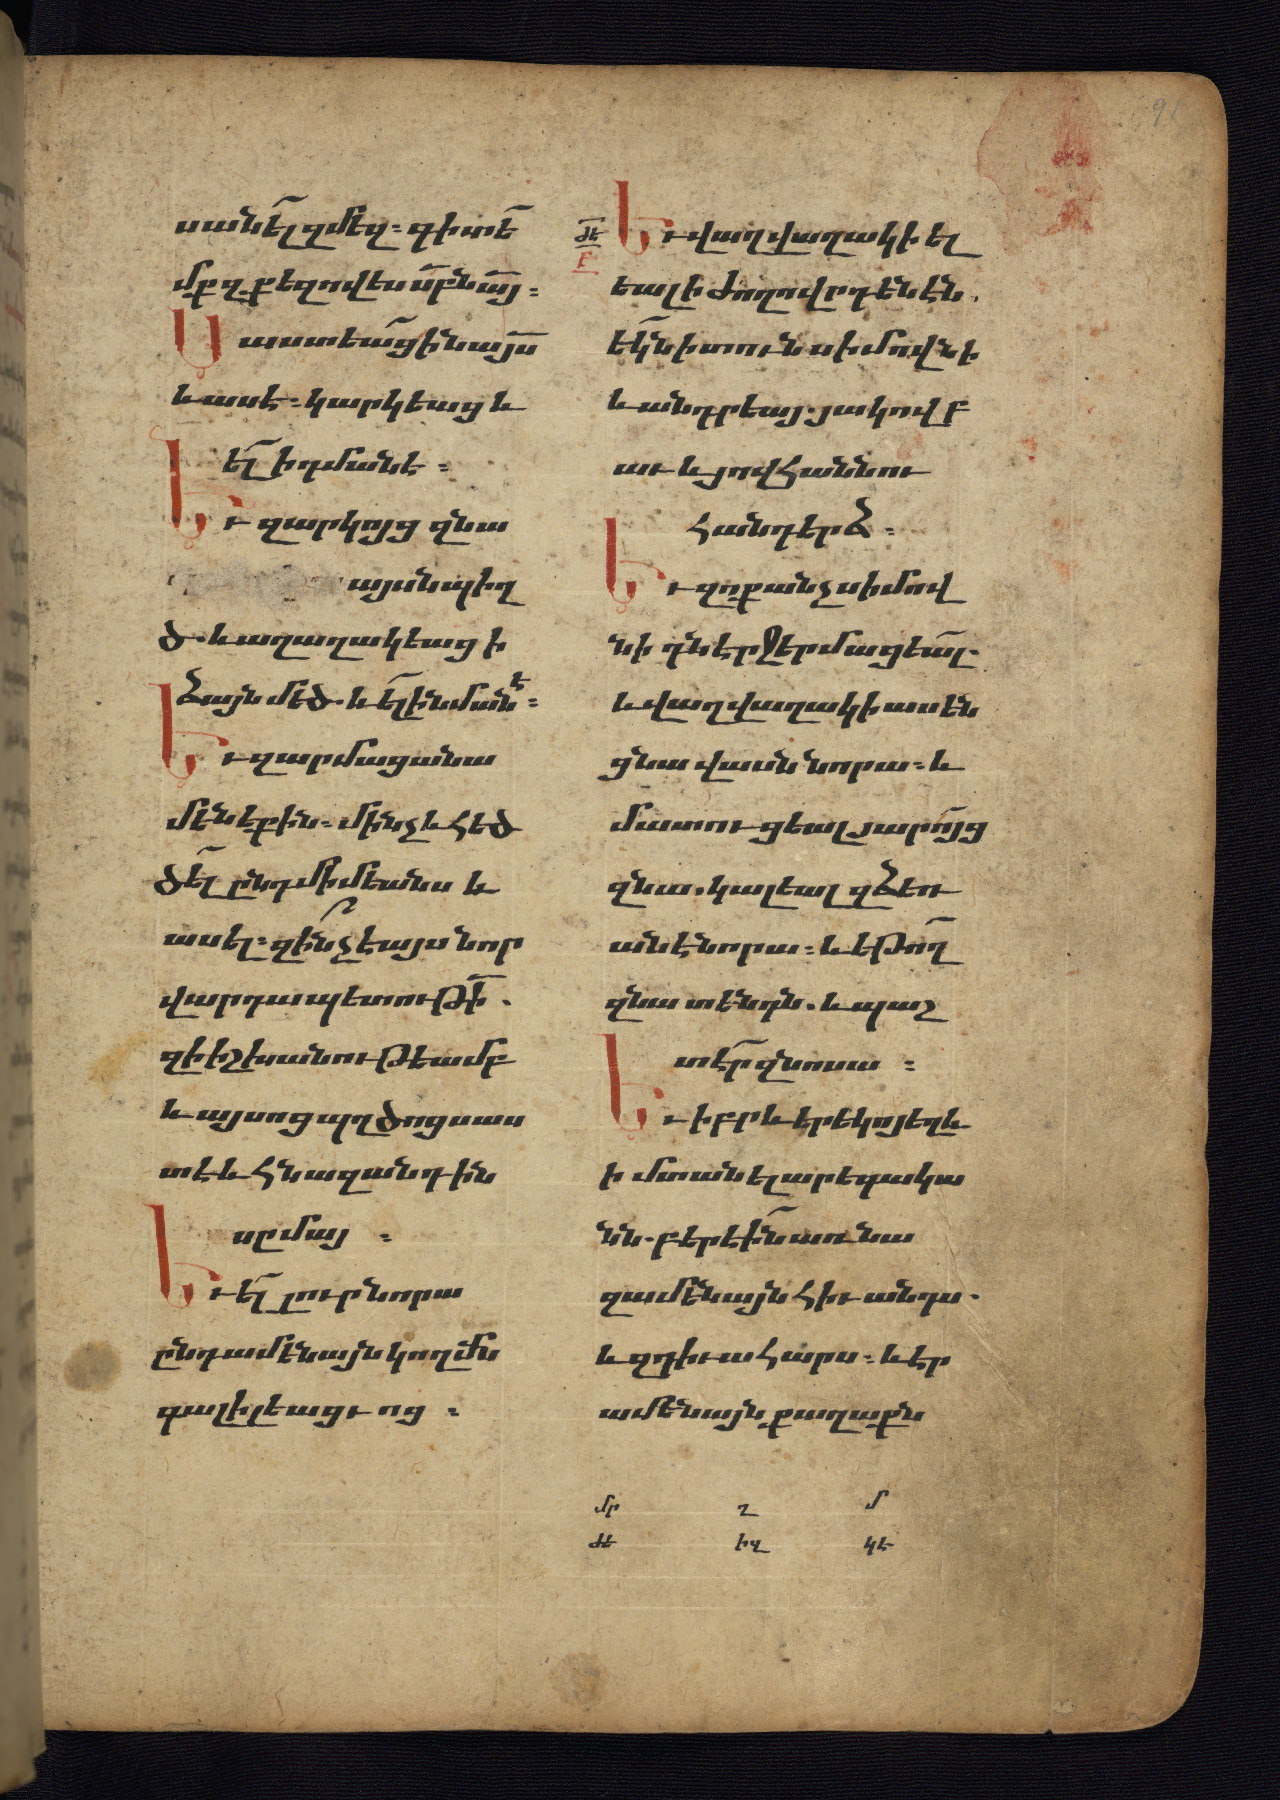 սանե̄լ զմե̄զ։ գիտե̄
մք զքեզ ո՞վ ես սբ̄ն ա̄յ։
Սաստեա̄ց ի նա յ̄ս
և ասէ։ կարկեաց և
ե̄լ ի դմանէ։
Եւ զարկոյց զնա
այսն պիղ
ծ. և աղաղակեաց ի
ձայն մեծ. և ե̄լ ի նմանէ։
Եւ զարմացան ա
մենեքին։ մինչև հեծ
ծե̄լ ընդ միմեանս և
ասել։ զի՞նչ է այս նոր
վարդապետութի̄.
զի իշխանութեամբ
և այսոց պղծոց սաս
տէ և հնազանդին
սըմայ։
Եւ ե̄լ լուր նորա
ընդ ամենայն կողմն
գալիլեացւոց։
ժէ
բ
Եւ վաղվաղակի ել
եալ ի ժողովրդենէն.
եկ̄ն ի տուն սիմովնի
և անդրեայ. յակովբ
աւ և յովհաննու
հանդերձ։
Եւ զոքանչ սիմով
նի դնէր ջերմացեա̄լ.
և վաղվաղակի ասեն
ցնա վասն նորա։ և
մատուցեալ յարո̄յց
զնա. կալեալ զձեռ
անէ նորա։ և եթո̄ղ
զնա տենդն. և պաշ
տէ̄ր զնոսա։
Եւ իբրև երեկոյ եղև
ի մտանել արեգակա
նն. բերեի̄ն առ նա
զամենայն հիւանդս.
և զդիւահարս։ և էր
ամենայն քաղաքն
մր ղ մ
ժէ իզ կե